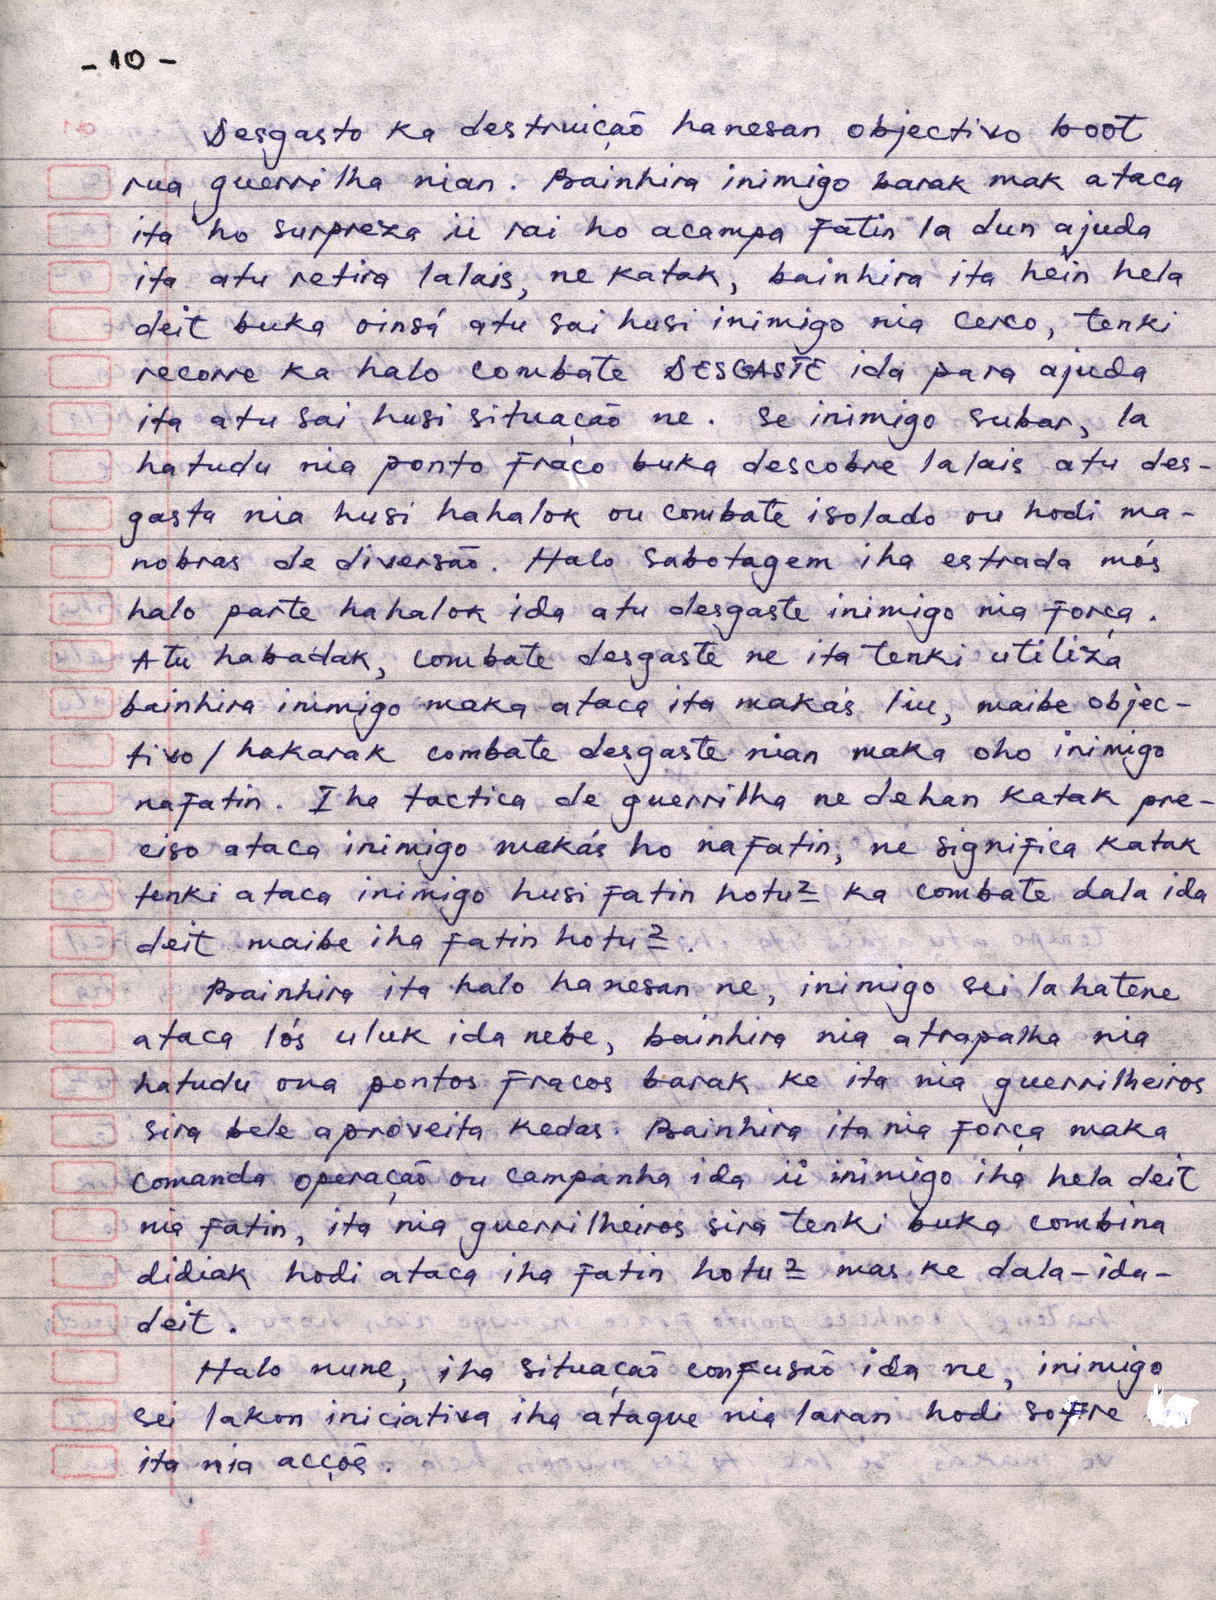 - 10 -
Desgasto ka destruição hanesan objectivo boot
rua guerrilha nian. Bainhira inimigo barak mak ataca
ita ho surpreza ii rai ho acampa fatin la dun ajuda
ita atu retira lalais, ne katak, bainhira ita hein hela
deit buka oinsá atu sai husi inimigo nia cerco, tenki
recorre ka halo combate DESGASTE ida para ajuda
ita atu sai husi situação ne. Se inimigo subar, la
hatudu nia ponto fraco buka descobre lalais atu des-
gasta nia husi hahalok ou combate isolado ou hodi ma-
nobras de diversão. Halo sabotagem iha estrada mós
halo parte hahalok ida atu desgaste inimigo nia força.
Atu habadak, combate desgaste ne ita tenki utiliza
bainhira inimigo maka ataca ita makás liu, maibe objec-
tivo/hakarak combate desgaste nian maka oho inimigo
nafatin. Iha tactica de guerrilha ne dehan katak pre-
ciso ataca inimigo makás ho nafatin, ne significa katak
tenki ataca inimigo husi fatin hotu2 ka combate dala ida
deit maibe iha fatin hotu2.
Bainhira ita halo hanesan ne, inimigo sei la hatene
ataca lós uluk ida nebe, bainhira nia atrapalha nia
hatudu ona pontos fracos barak ke ita nia guerrilheiros
sira bele aproveita kedas. Bainhira ita nia força maka
comanda operação ou campanha ida ii inimigo iha hela deit
nia fatin, ita nia guerrilheiros sira tenki buka combina
didiak hodi ataca iha fatin hotu2 mas ke dala-ida-
deit.
Halo nune, iha situação confusão ida ne, inimigo
sei lakon iniciativa iha ataque nia laran hodi sofre
ita nia acções.